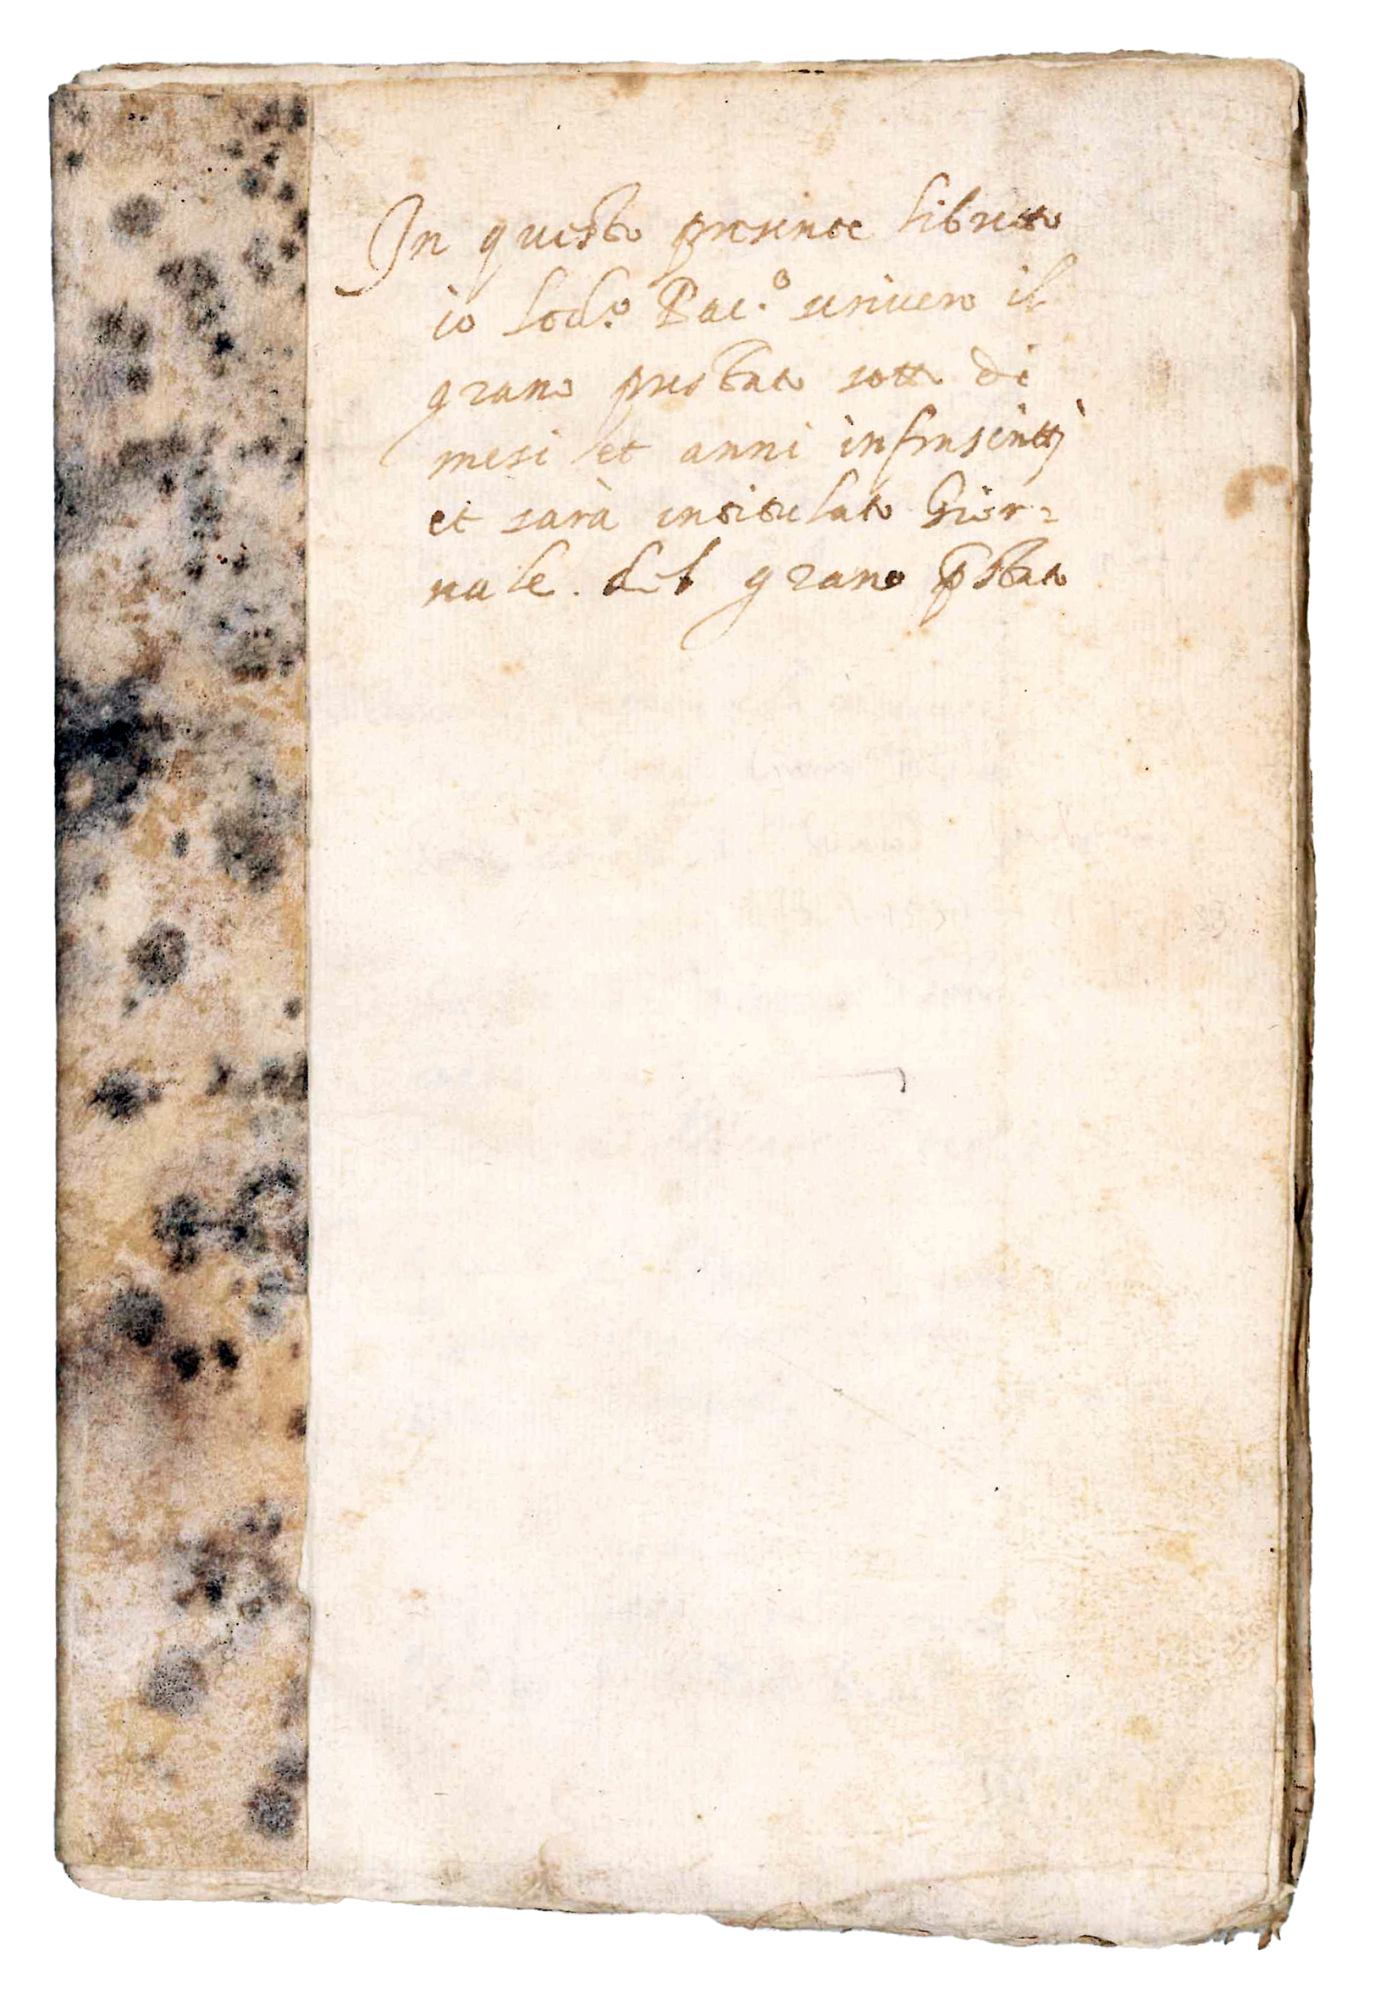 In questo presente libretto
io Lod.o Bac.o scrivero il
grano prestato sotto di
mesi et anni infrascritti
et sarà intitulato Gior=
nale. del grano pstato